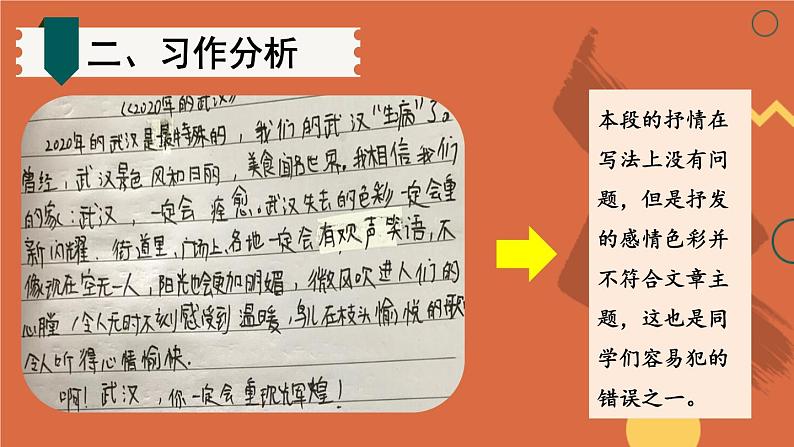 二、习作分析
《2020年的武汉》
2020年的武汉是最特殊的，我们的武汉“生病”了。
曾经，武汉景色风和日丽，美食闻名世界。我相信我们
的家：武汉，一定会痊愈。武汉失去的色彩一定会重
新闪耀。街道里，广场上，各地一定会有欢声笑语，不
像现在空无一人，阳光也会更加明媚，微风吹进人们的
心膛，令人无时不刻感受到温暖，鸟儿在枝头愉悦的歌
令人听得心情愉快。
啊！武汉，你一定会重现辉煌！
本段的抒情在
写法上没有问
题，但是抒发
的感情色彩并
不符合文章主
题，这也是同
学们容易犯的
错误之一。